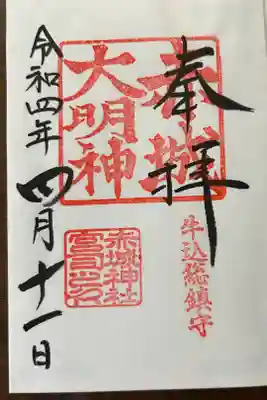 奉拝
赤城
大明神
牛込総鎮守
赤城神社
宮司之印
令和四年四月十一日